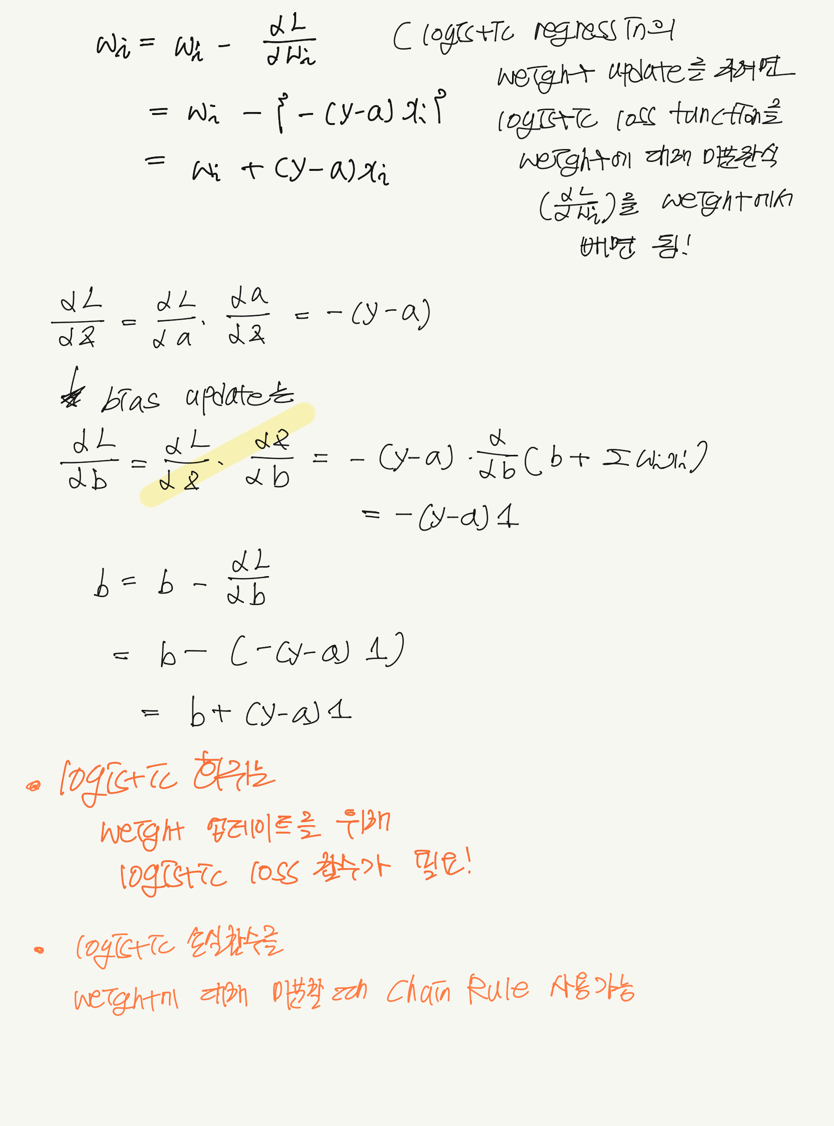 wᵢ = wᵢ - dL/dwᵢ (logistic regression의
weight update를 구하려면
= wᵢ - {-(y-a)xᵢ} logistic loss function을
= wᵢ + (y-a)xᵢ weight에 대해 미분한식
(dL/dwᵢ)을 weight에서
빼면 됨!
dL/dz = dL/da · da/dz = -(y-a)
bias update는
dL/db = dL/dz · dz/db = -(y-a) · d/db (b + Σwᵢxᵢ)
= -(y-a)1
b = b - dL/db
= b - (-(y-a)1)
= b + (y-a)1
• logistic 회귀는
weight 업데이트를 위해
logistic loss 함수가 필요!
• logistic 손실함수를
weight에 대해 미분할 때 Chain Rule 사용가능